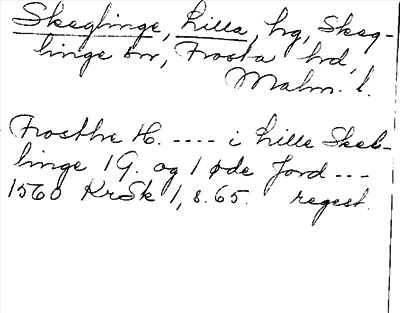 Skeglinge, Lilla, hg, Skeg-
linge sn, Frosta hd,
Malm. l.
Frosthr H. ---- i Lille Skeb-
linge 1 G. og 1 øde Jord ---
1560 KrSk 1, s. 65. regest.